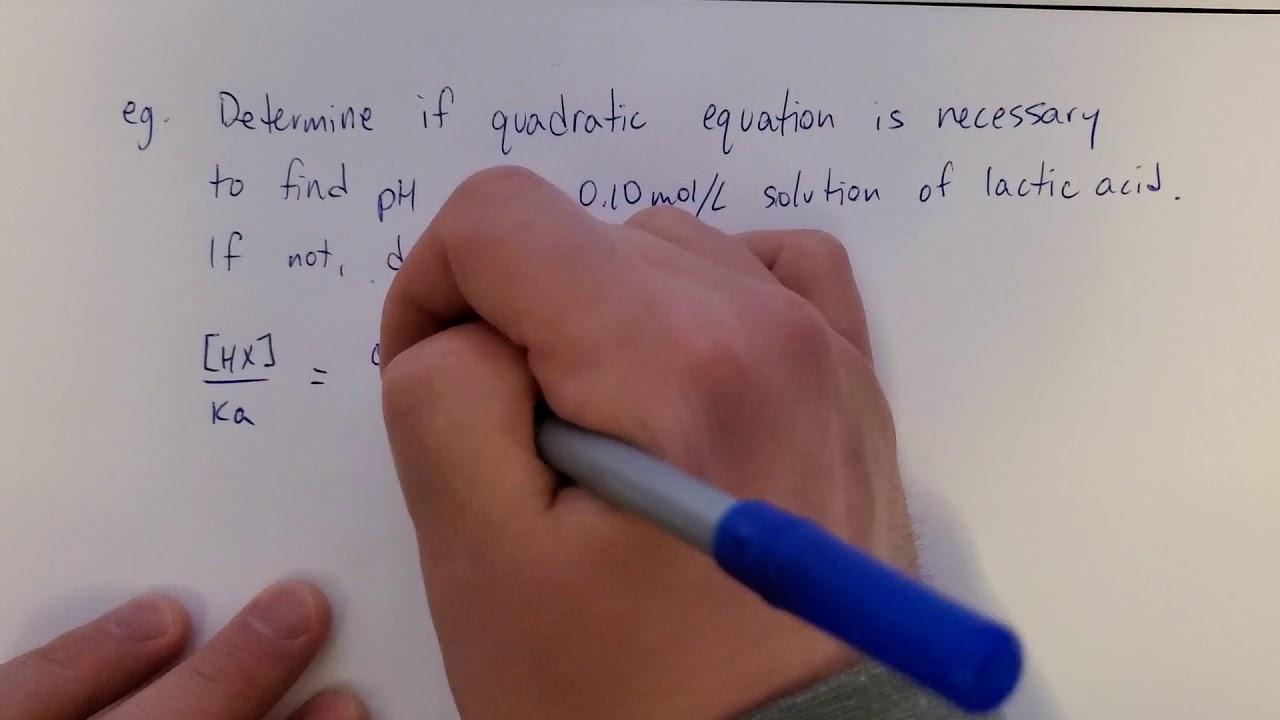 eg. Determine if quadratic equation is necessary
to find pH 0.10 mol/L solution of lactic acid.
If not,
[HX]
=
Ka